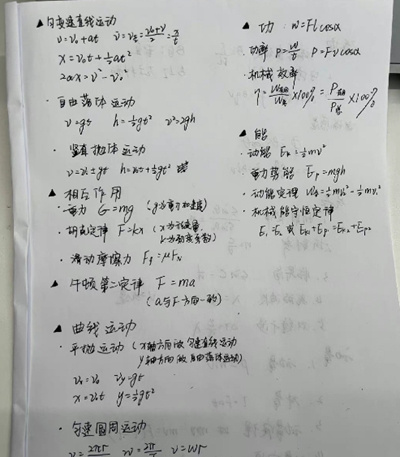 ▲匀变速直线运动
v=v₀+at  v̄=v_{t/2}=(v₀+v)/2=x/t
x=v₀t+½at²
2ax=v²-v₀²
·自由落体运动
v=gt  h=½gt²  v²=2gh
·竖直抛体运动
v=v₀±gt  h=v₀t±½gt²
▲相互作用
·重力 G=mg
·胡克定律 F=kx (x为形变量,
k为劲度系数)
·滑动摩擦力 F_f=μF_N
▲牛顿第二定律 F=ma
(a与F方向一致)
▲曲线运动
·平抛运动(x轴方向做匀速直线运动
y轴方向做自由落体运动)
v₀=v₀  v_y=gt
x=v₀t  y=½gt²
·匀速圆周运动
v=2πr/  w=2π/  v=wr
▲功:w=Flcosα
功率 P=w/t  P=Fvcosα
·机械效率
η=W有用/W总×100%=P有用/P总×100%
▲能
·动能 E_k=½mv²
·重力势能 E_p=mgh
·动能定理 W=½mv₂²-½mv₁²
·机械能守恒定律
E₁=E₂ 或 E_{k1}+E_{p1}=E_{k2}+E_{p2}